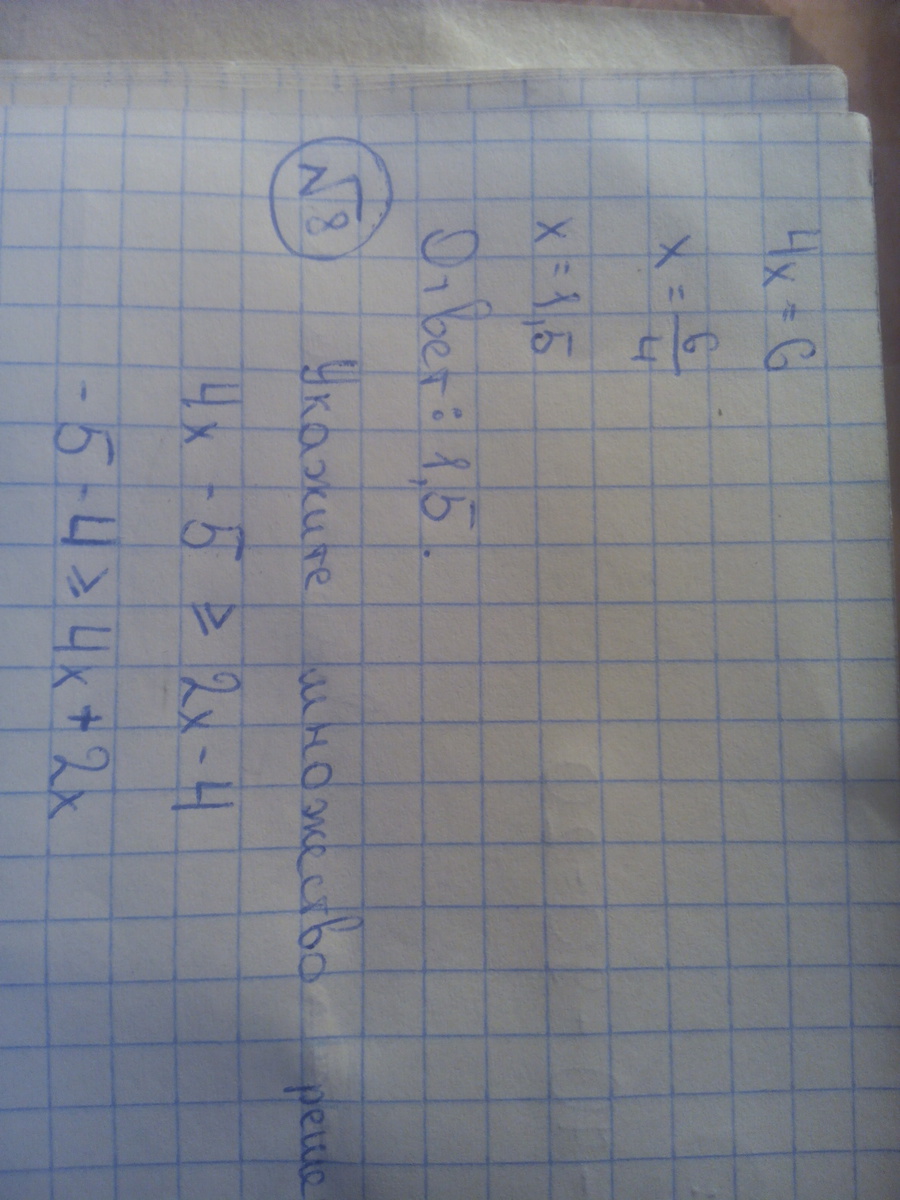 4x = 6
x = 6/4
x = 1,5
Ответ: 1,5.
№8 Укажите множество реше
4x - 5 ⩾ 2x - 4
- 5 - 4 ⩾ 4x + 2x